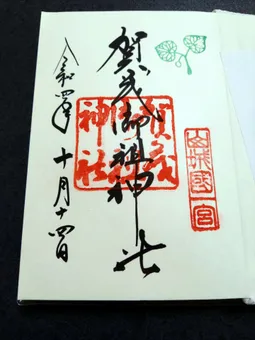 賀茂御祖神社
令和四年十月十四日
賀茂
御祖
神社
山城國
一宮